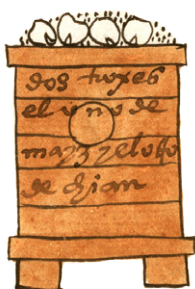 dos troxes
el uno de
mayz y el otro
de chian